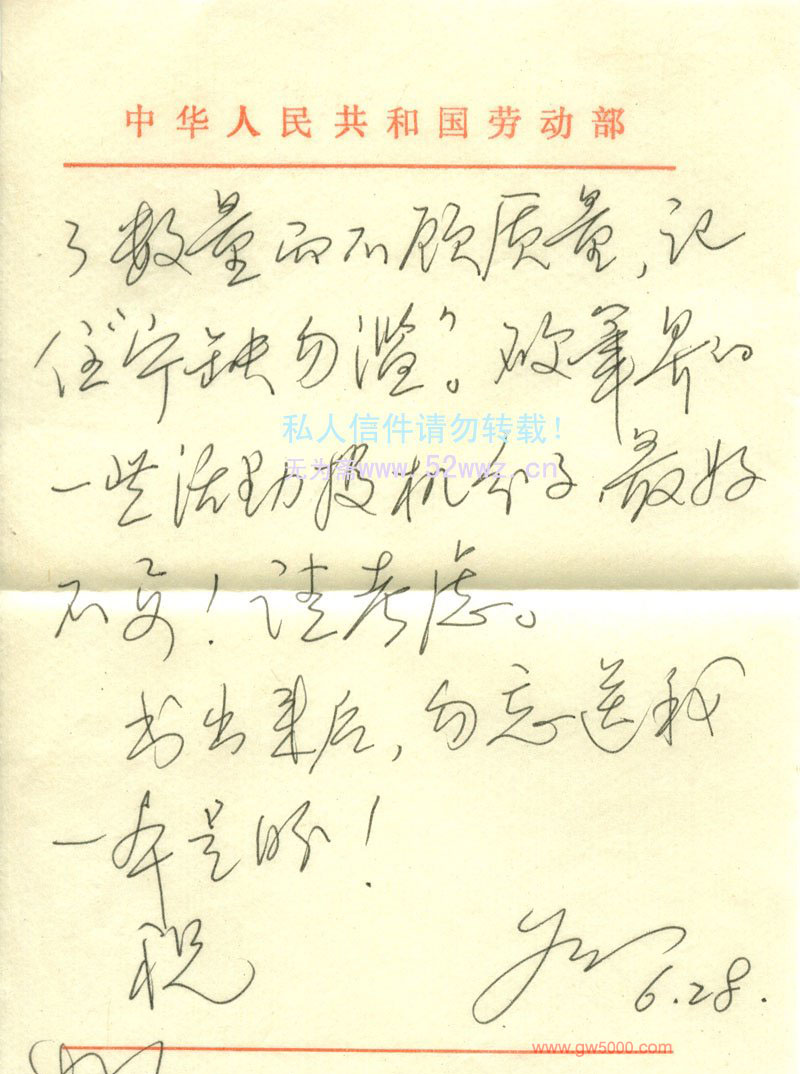 中华人民共和国劳动部
了数量而不顾质量，记
住"宁缺勿滥"。硬笔界的
私人信件请勿转载！
无为斋www.52wwz.cn
一些活动投机分子，最好
不要！请考虑。
书出来后，勿忘送我
一本是盼！
祝
6.28.
www.gw5000.com